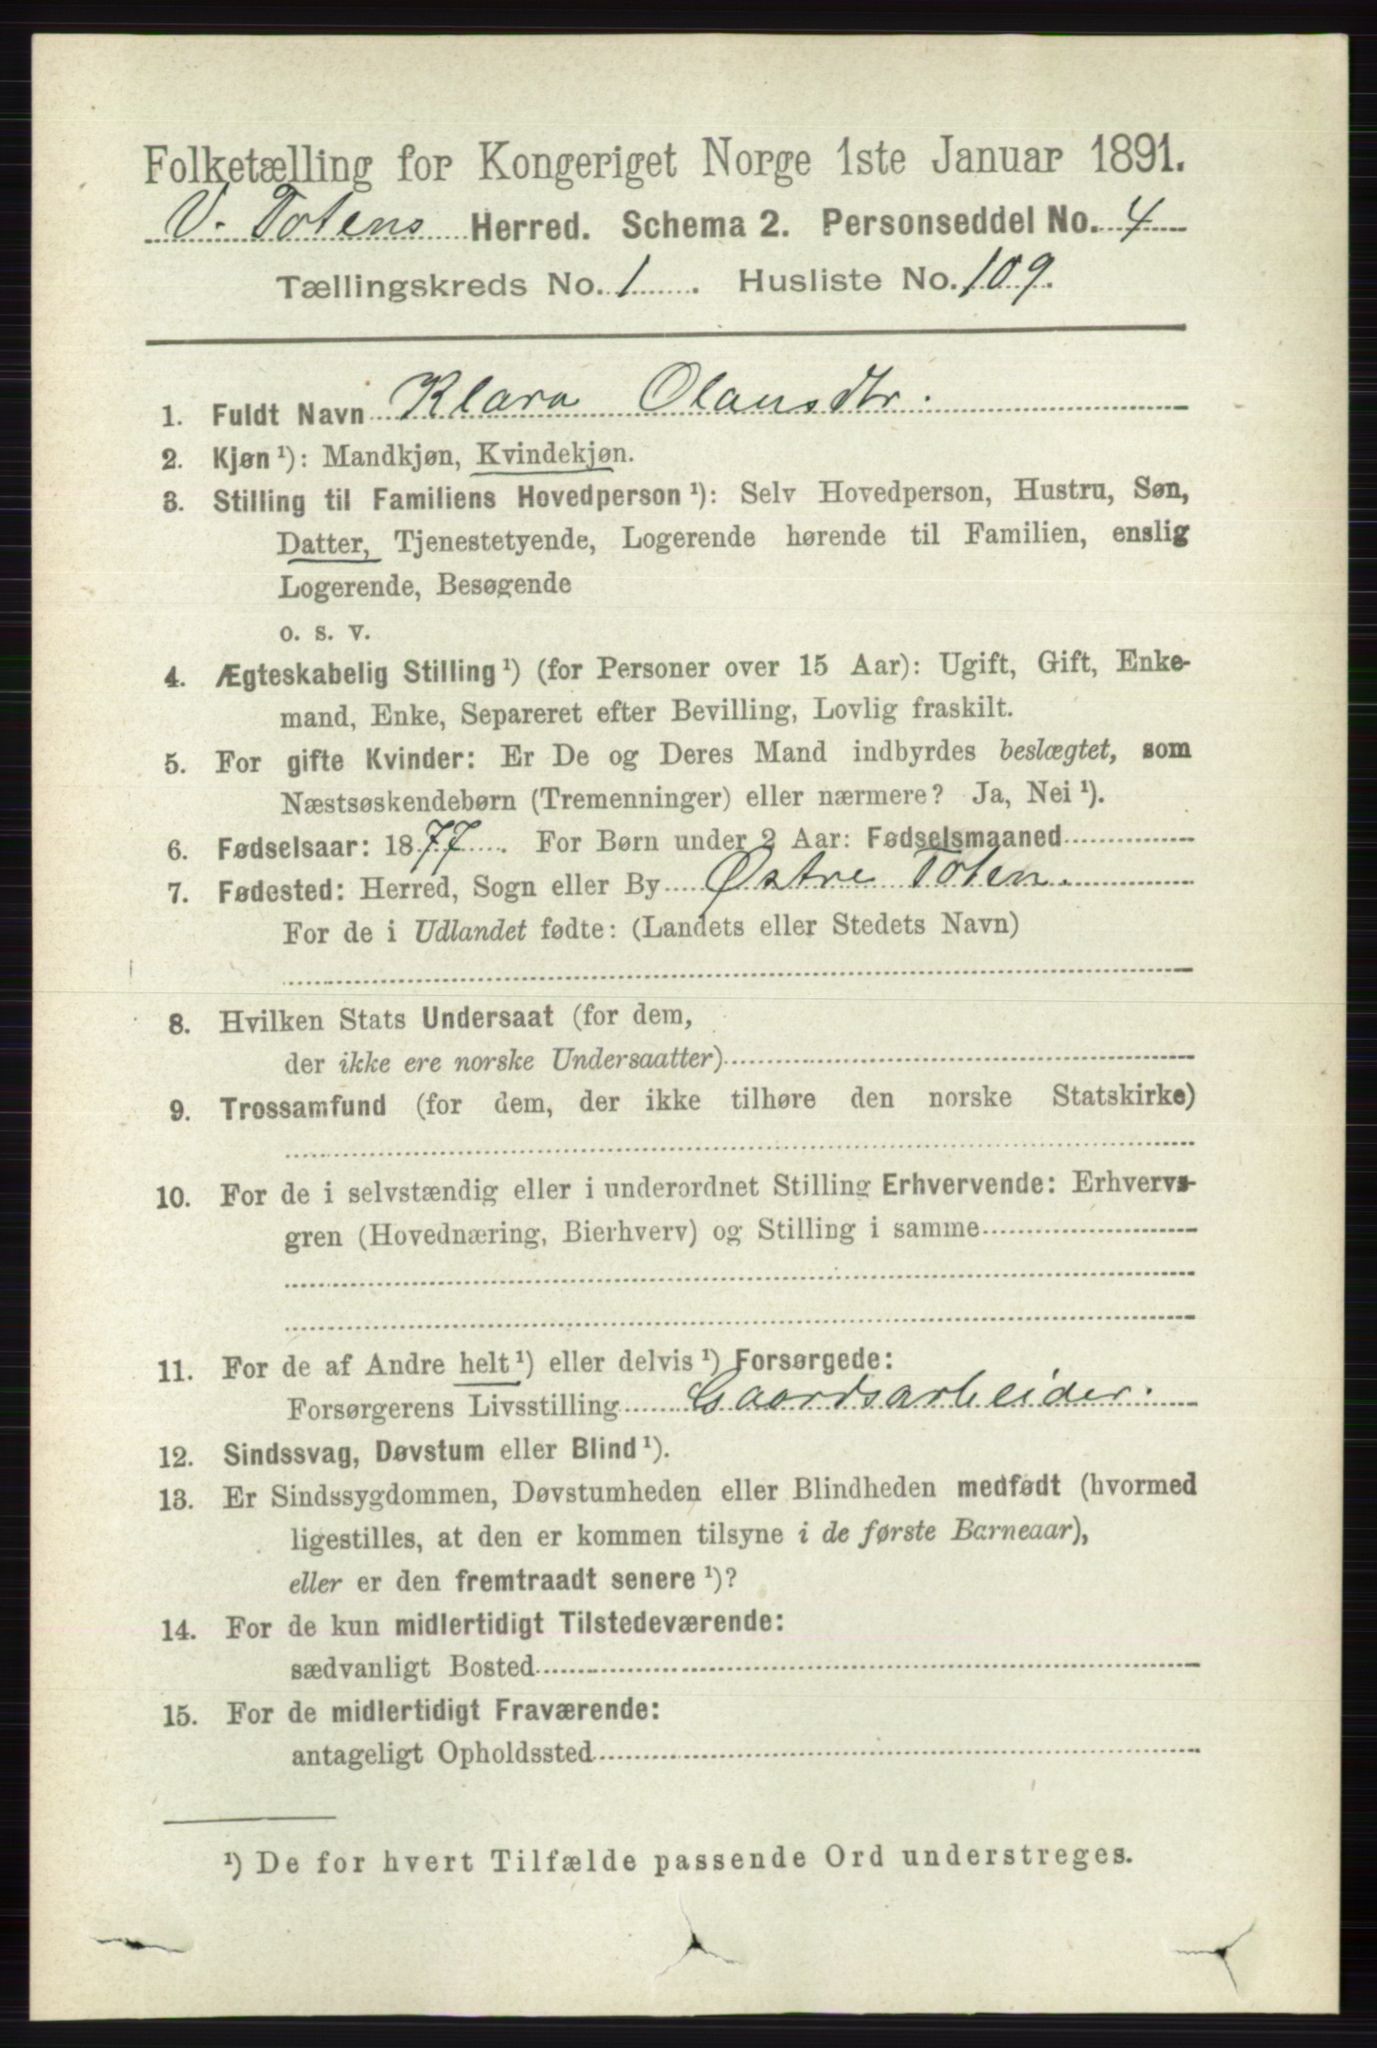 Folketælling for Kongeriget Norge 1ste Januar 1891.
V. Totens Herred. Schema 2. Personseddel No. 4
Tællingskreds No. 1. Husliste No. 109.
1. Fuldt Navn Klara Olausdtr.
2. Kjøn ¹): Mandkjøn, Kvindekjøn.
3. Stilling til Familiens Hovedperson ¹): Selv Hovedperson, Hustru, Søn,
Datter, Tjenestetyende, Logerende hørende til Familien, enslig
Logerende, Besøgende
o. s. v.
4. Ægteskabelig Stilling ¹) (for Personer over 15 Aar): Ugift, Gift, Enke-
mand, Enke, Separeret efter Bevilling, Lovlig fraskilt.
5. For gifte Kvinder: Er De og Deres Mand indbyrdes beslægtet, som
Næstsøskendebørn (Tremenninger) eller nærmere? Ja, Nei ¹).
6. Fødselsaar: 1877. For Børn under 2 Aar: Fødselsmaaned
7. Fødested: Herred, Sogn eller By Østre Toten.
For de i Udlandet fødte: (Landets eller Stedets Navn)
8. Hvilken Stats Undersaat (for dem,
der ikke ere norske Undersaatter)
9. Trossamfund (for dem, der ikke tilhøre den norske Statskirke)
10. For de i selvstændig eller i underordnet Stilling Erhvervende: Erhvervs-
gren (Hovednæring, Bierhverv) og Stilling i samme
11. For de af Andre helt ¹) eller delvis ¹) Forsørgede:
Forsørgerens Livsstilling Gaardsarbeider.
12. Sindssvag, Døvstum eller Blind ¹).
13. Er Sindssygdommen, Døvstumheden eller Blindheden medfødt (hvormed
ligestilles, at den er kommen tilsyne i de første Barneaar),
eller er den fremtraadt senere ¹)?
14. For de kun midlertidigt Tilstedeværende:
sædvanligt Bosted
15. For de midlertidigt Fraværende:
antageligt Opholdssted
¹) De for hvert Tilfælde passende Ord understreges.